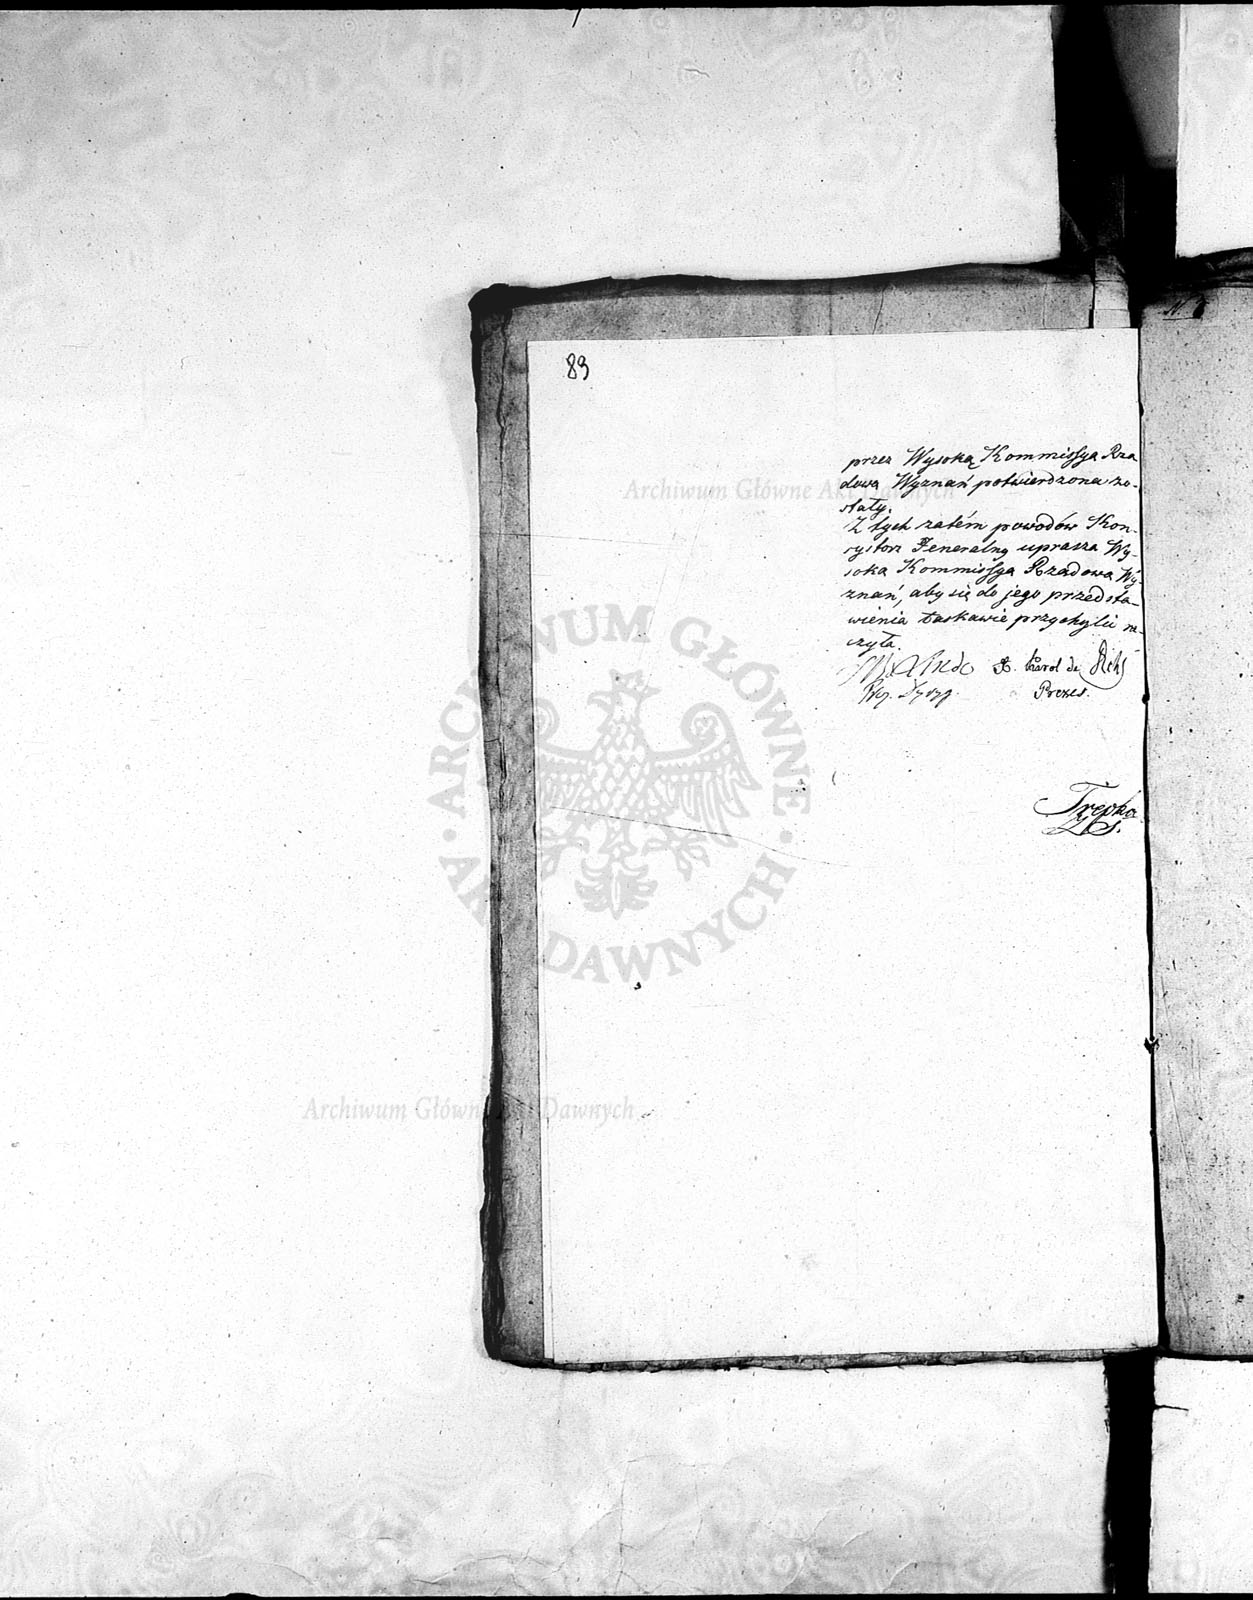 89
przez Wysoką Kommissyą Rzą
dową Wyznań potwierdzone zo-
stały.
Z tych zatém powodów Kon-
systorz Jeneralny uprasza Wy-
soką Kommissyą Rządową Wy-
znań, aby się do jego przedsta-
wienia łaskawie przychylić ra-
czyła.
X. Karol de
Prezes.
Trepka
Z. S.
N.
Archiwum Główne Akt Dawnych
ARCHIWUM GŁÓWNE
AKT DAWNYCH
Archiwum Główne Akt Dawnych